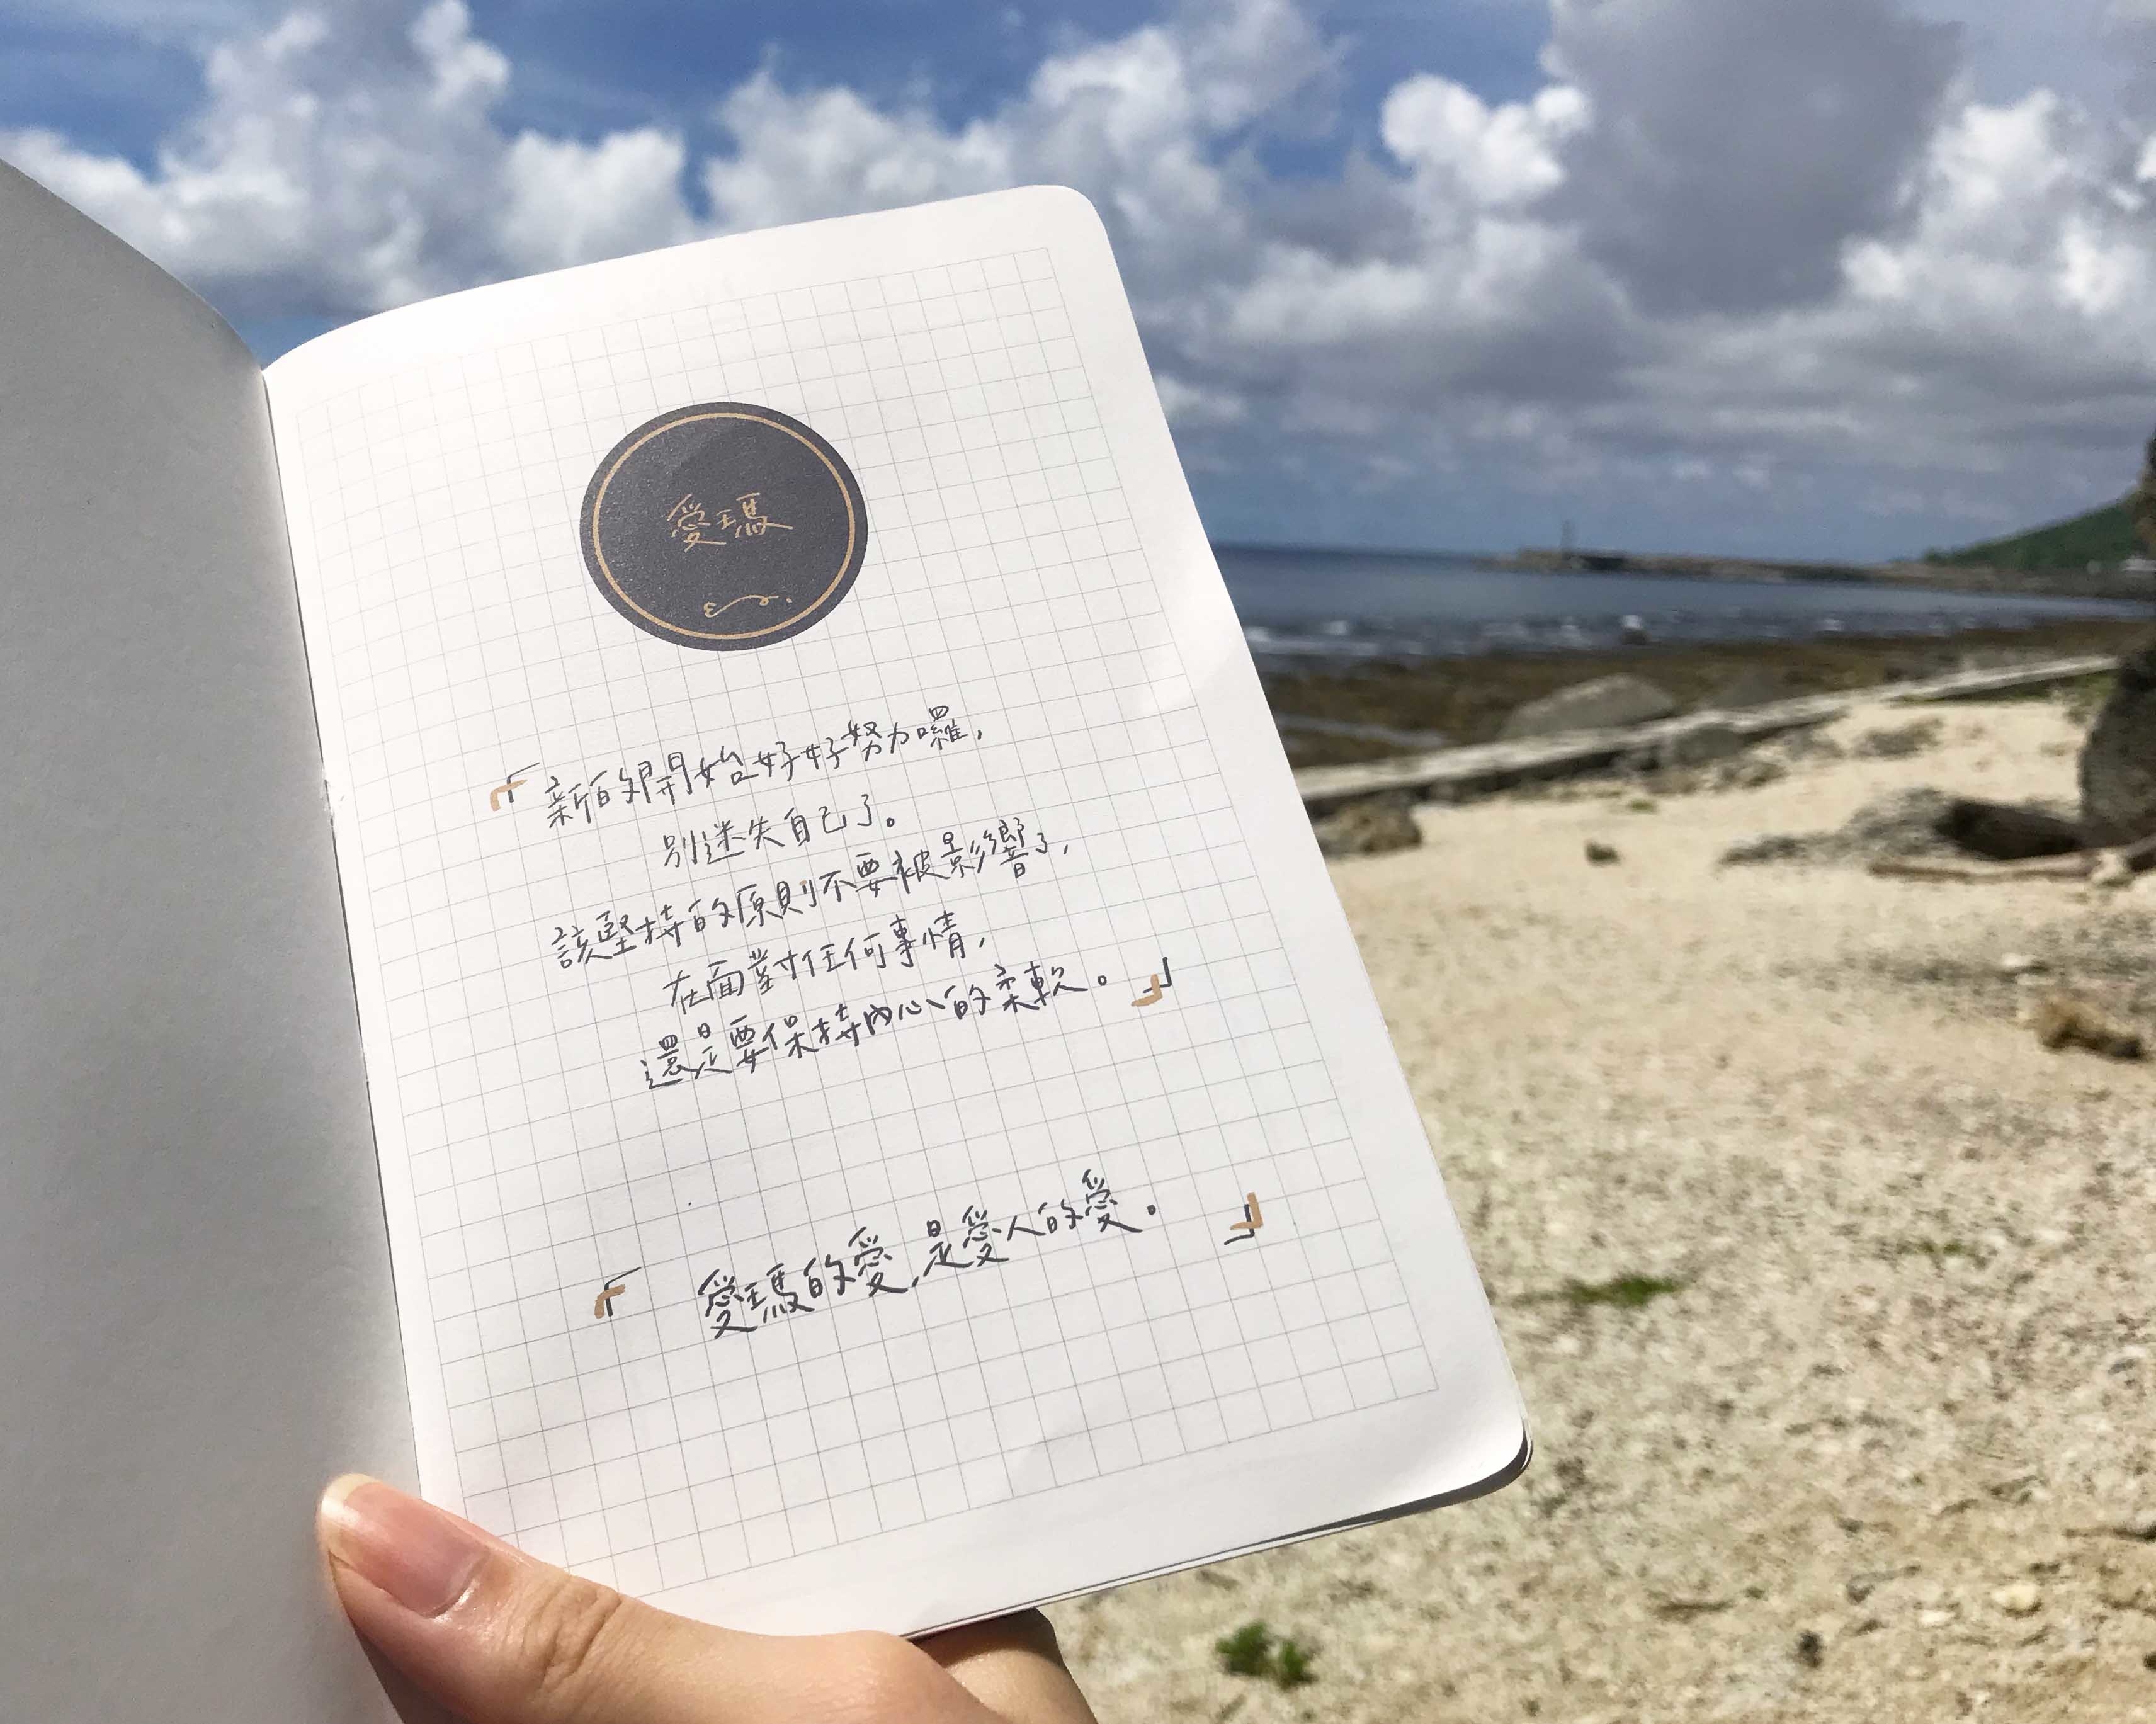 愛瑪
『新的開始好好努力囉，
別迷失自己了。
該堅持的原則不要被影響了，
在面對任何事情，
還是要保持內心的柔軟。』
『愛瑪的愛，是愛人的愛。』